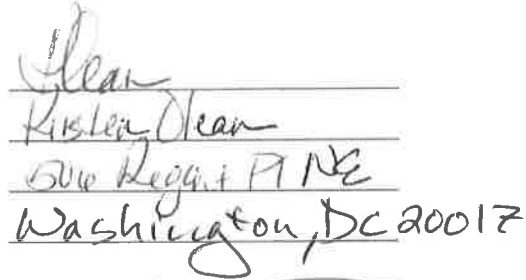 Olean
Kirsten Olean
506 Regent Pl NE
Washington, DC 20017